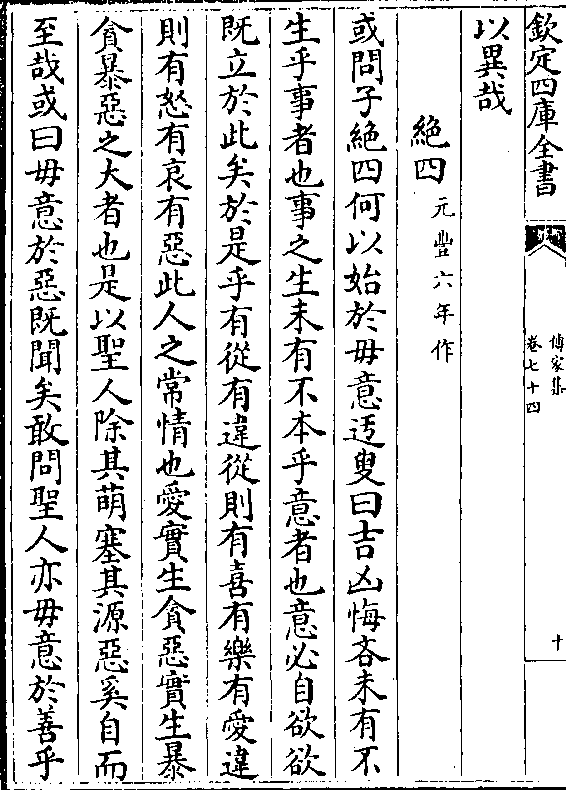 欽定四庫全書
傳家集
卷七十四
十
以異哉
絶四元豐六年作
或問子絶四何以始於毋意迃叟曰吉凶悔吝未有不
生乎事者也事之生未有不本乎意者也意必自欲欲
既立於此矣於是乎有從有違從則有喜有樂有愛違
則有怒有哀有惡此人之常情也愛實生貪惡實生暴
貪暴惡之大者也是以聖人除其萌塞其源惡奚自而
至哉或曰毋意於惡既聞矣敢問聖人亦毋意於善乎